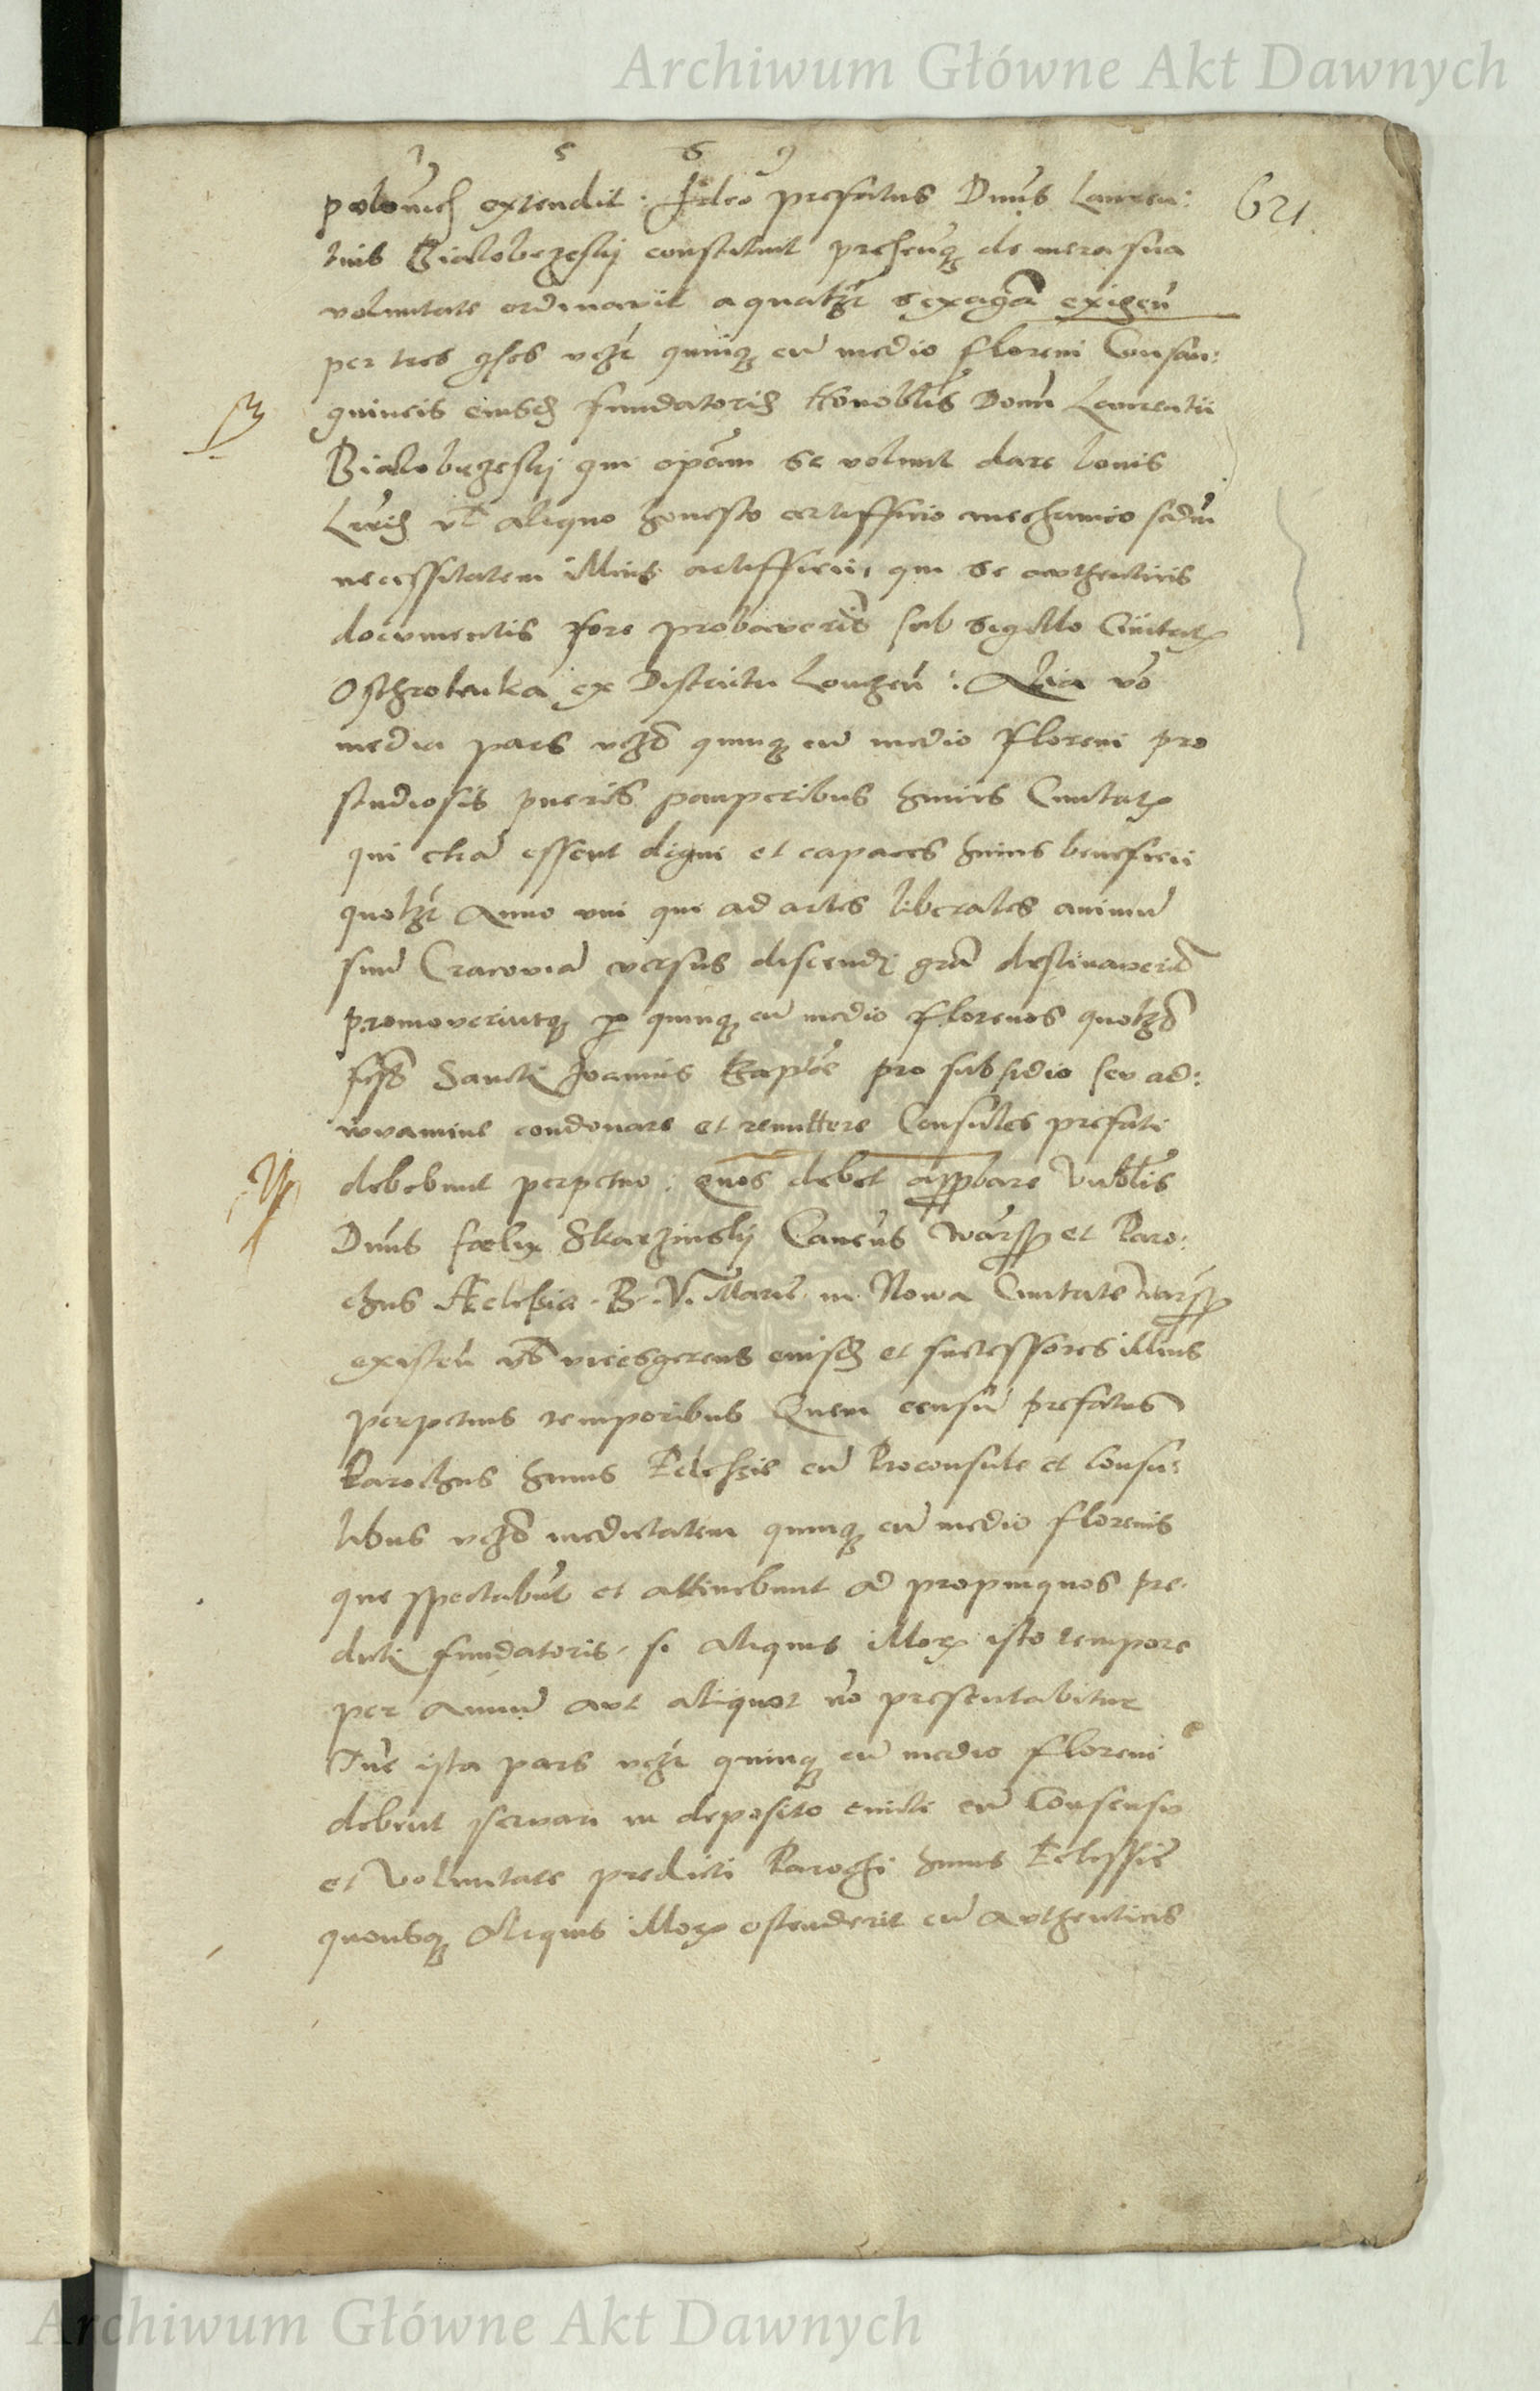 Archiwum Główne Akt Dawnych
1 5 6 9
621.
extendit : Ideo prefatus Dnus Lauren:
tius Bialobrzeskij constituit de mera sua
voluntate ordinavit a sexaga exigen
per tres quinq cu medio floreni Consan:
guineis eiusd fundatoris Honobilis Domi Laurentii
Bialobrzeskij qui opam se volunt dare bonis
aliquo honesto artifficio mechanico
necessitatem illius artifficii, qui se authenticis
documentis fore probaverit sub sigillo Civitatis
Osthrolenka ex Districtu Lomzen : Alia vo
media pars quinq cu medio floreni pro
studiosis pueris pauperibus huius Civitatis
qui etia essent digni et capaces huius beneficii
Anno uni qui ad artes liberales animu
suu Cracovia versus discendi gra destinaverit
promoveritq quinq cu medio florenos
festo Sancti Joannis Bapte pro subsidio seu ad:
iuvamine condonare et remittere Consules prefati
debebunt perpetuo : quos debet Nobilis
Dnus foelix Skarzinskij Warsz et Paro:
chus B. V. Marie in Nowa Civitate Warsz
existen vicesgerens eiusd et successores illius
perpetuis temporibus Quem censu prefatus
Parochus huius Eclesie cu Proconsule et Consu:
libus medietatem quinq cu medio florenis
que spectabut et attinebunt ad propinquos pre:
dicti fundatoris, si aliquis illorum isto tempore
per Annu aut aliquot no presentabitur
Tuc ista pars quinq cu medio floreni
debent servari in deposito civili cu Consensu
et Voluntate predicti Parochi huius Eclessie
quousq Aliquis illorum ostenderit cu Authenticis
Archiwum Główne Akt Dawnych